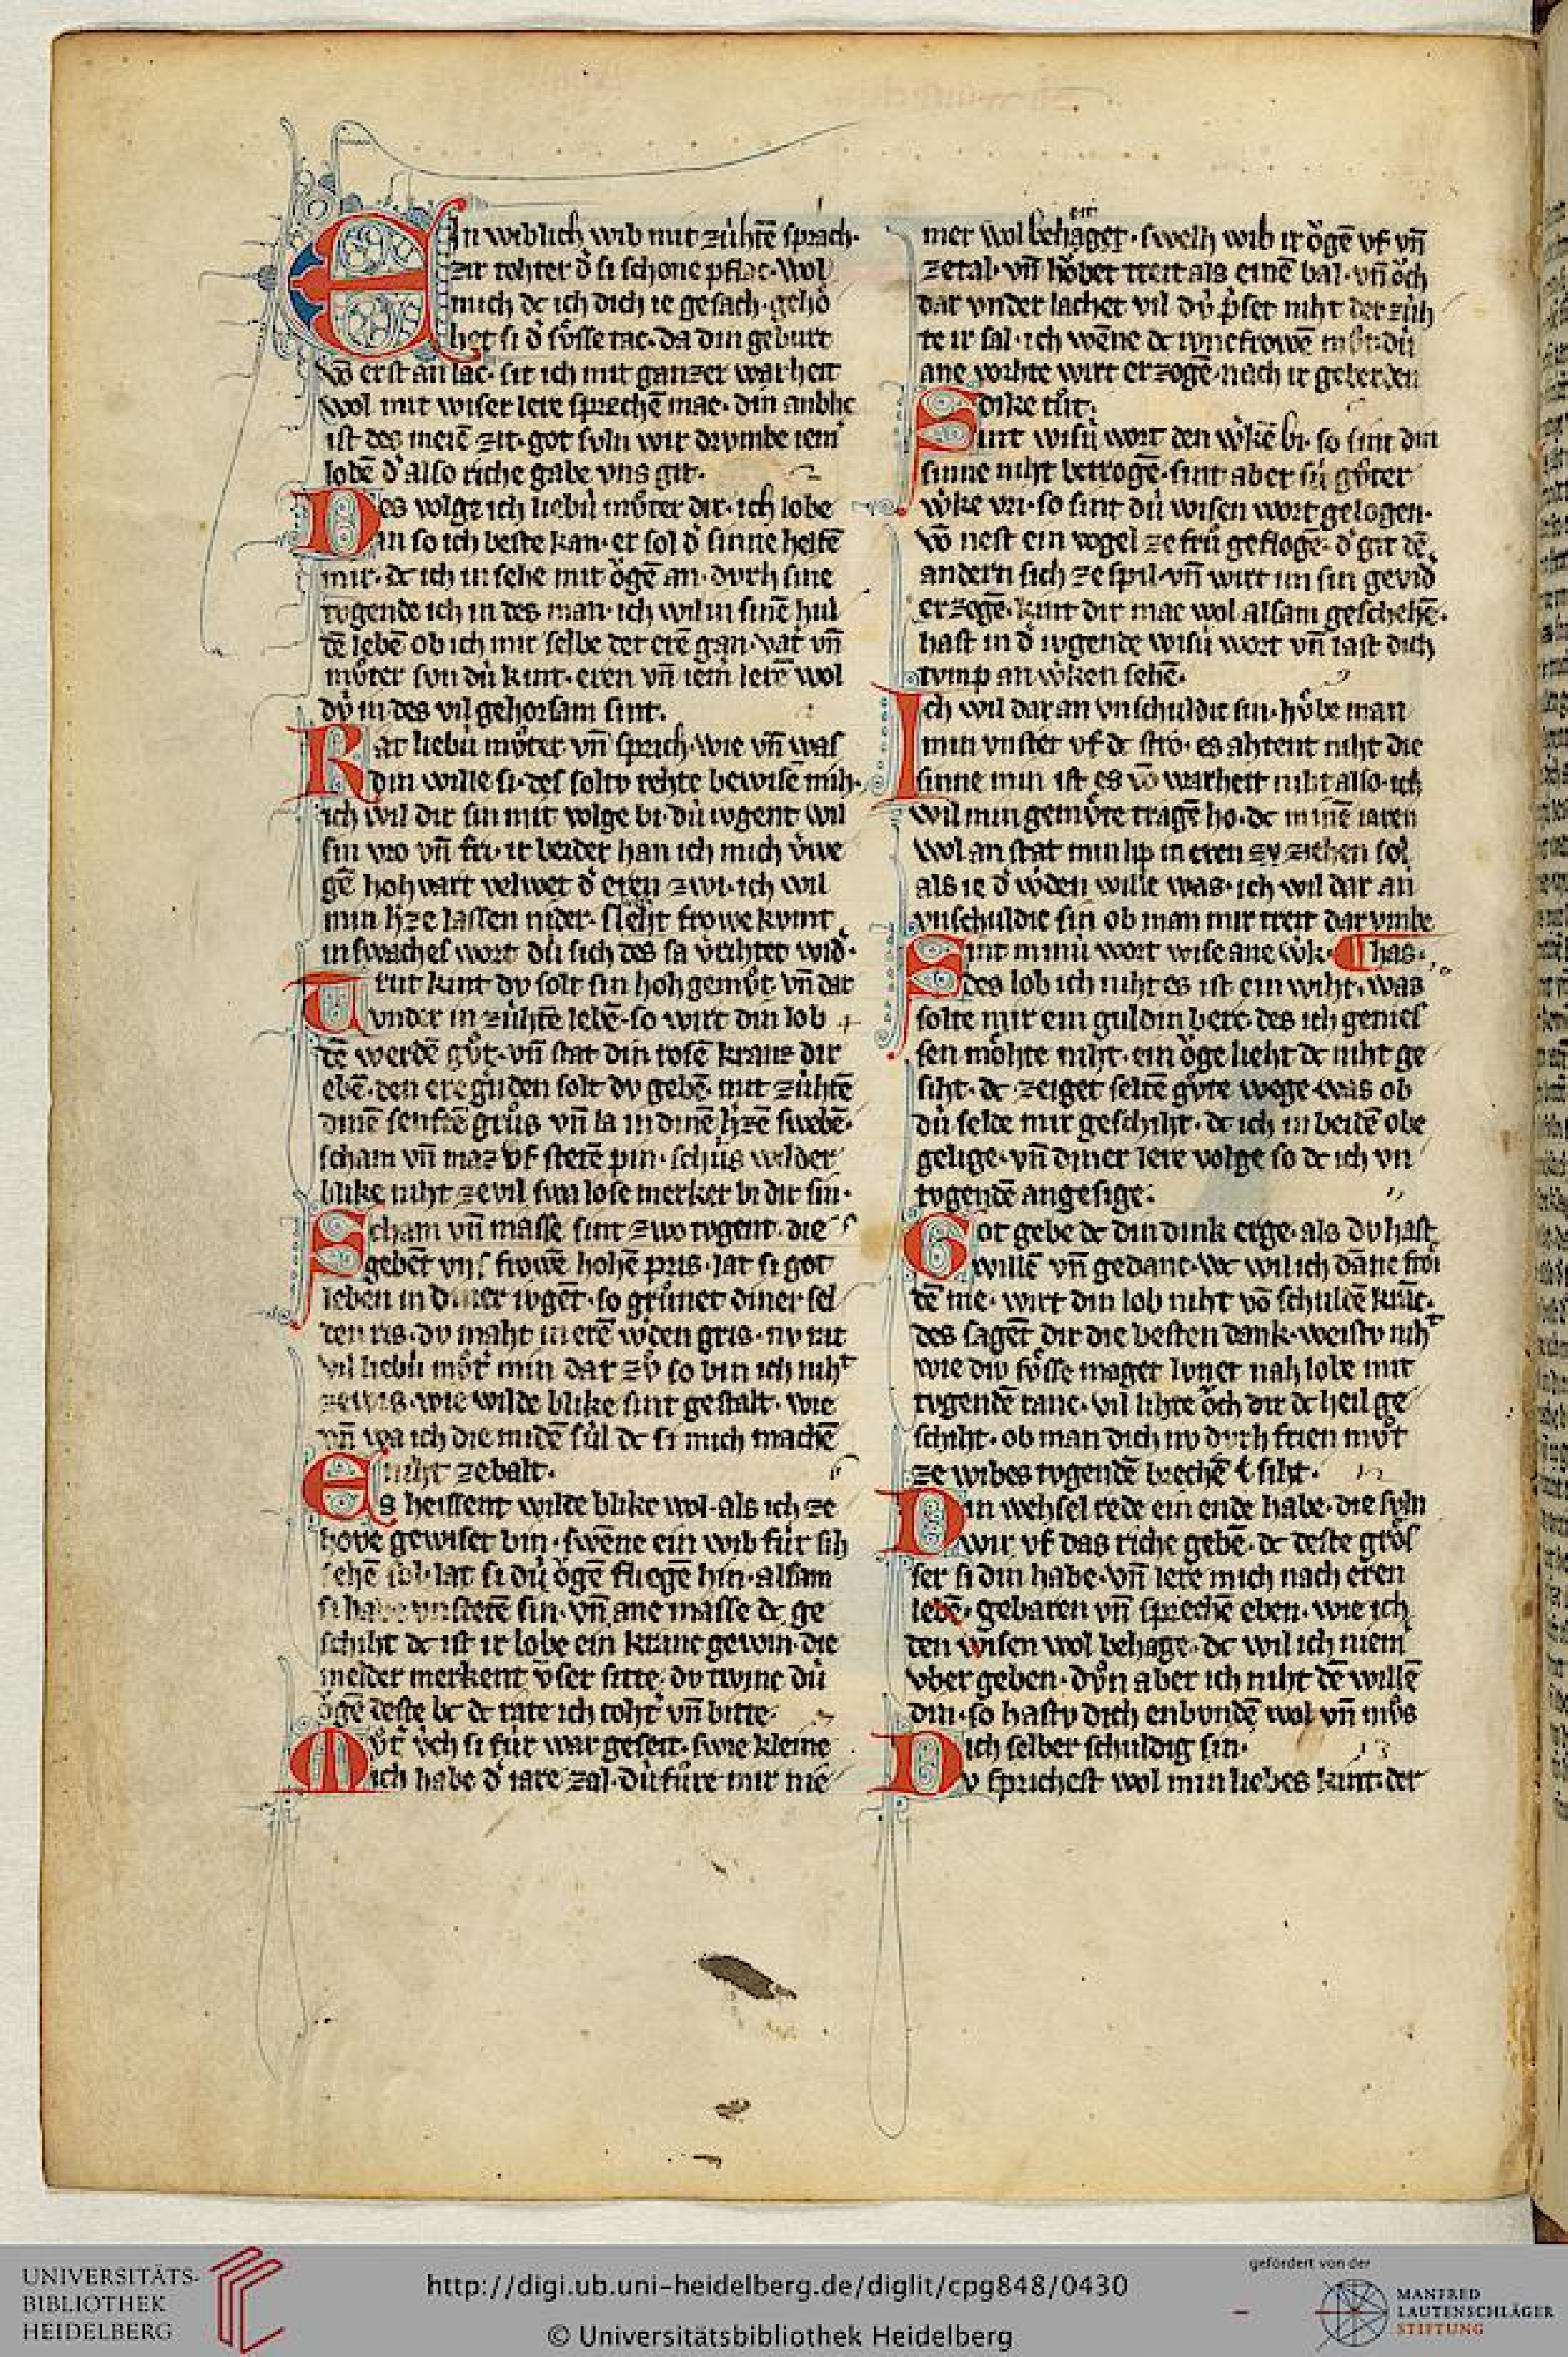 EIn wiblich wib mit zu̍htē sprach·
zir tohter d̄ si schone pflac· Wol
mich dc ich dich ie gesach· gehȯ
het si d̄ sůsse tac· da din geburt
vō erst an lac· sit ich mit ganzer warheit
wol mit wiser lere sprechē mac· din anblic
ist des meiē zit· got suln wir drvmbe iem̄
lobē d̄ also riche gabe vns git·
Des volge ich liebu̍ můter dir· ich lobe
in so ich beste kan· er sol d̄ sinne helfē
mir· dc ich in sehe mit ȯgē an· dvrh sine
tvgende ich in des man· ich wil in sinē hul
dē lebē ob ich mir selbe der erē gan· vat̄ vn̄
můter svn du̍ kint· eren vn̄ iem̄ lerē wol
dv̍ in des vil gehorsam sint·
Rat liebu̍ můter vn̄ sprich· wie vn̄ was
din wille si· des soltv rehte bewisē mih·
ich wil dir sin mit volge bi· du̍ ivgent wil
sin vro vn̄ fri· ir beider han ich mich v̄we
gē hohvart velwet d̄ eren zwi· ich wil
min h̄ze lassen nider· sleht frowe kvmt
in swaches wort du̍ sich des sa v̄rihtet wid̄·
Trut kint dv solt sin hohgemůt· vn̄ dar
vnder in zu̍htē lebē· so wirt din lob
dē werdē gůt· vn̄ stat din rosē kranz dir
ebē· den ere gu̍den solt dv gebē· mit zu̍htē
dinē senftē grůs vn̄ la in dinē h̄zē swebē·
scham vn̄ maz vf stetē pin· schu̍s wilder
blike niht ze vil swa lose merker bi dir sin·
Scham vn̄ masse sint zwo tvgent· die
gebēt vns frowē hohē pris· lat si got
leben in diner ivgēt· so grůnet diner sel
den ris· dv maht in erē w̄den gris· nv rat
vil liebu̍ můt̄ min dar zů so bin ich niht
zewis· wie wilde blike sint gestalt· wie
vn̄ wa ich die midē su̍l dc si mich machē
niht zebalt·
Es heissent wilde blike wol· als ich ze
hove gewiset bin· swēne ein wib fu̍r sih
sehē sol· lat si du̍ ȯgē fliegē hin· alsam
si habe vnstetē sin· vn̄ ane masse dc ge
schiht dc ist ir lobe ein kranc gewin· die
melder merkent v̄ser sitte· dv twinc du̍
ȯgē deste bc dc rate ich toht̄ vn̄ bitte·
Můt̄ v̍ch si fu̍r war geseit· swie kleine
ich habe d̄ iare zal· du̍ fůre mir nie
mer wol behaget· swelh wib ir ȯgē vf vn̄
zetal· vn̄ hȯbet treit als einē bal· vn̄ ȯch
dar vnder lachet vil dv̍ p̄set niht der zu̍h
te ir sal· ich wēne dc ivncfrowē můt· du̍
ane vorhte wirt erzogē· nach ir geberden
dike tůt·
Sint wisu̍ wort den w̄kē bi· so sint din
sinne niht betrogē· sint aber su̍ gůter
w̄ke vri· so sint du̍ wisen wort gelogen·
vō nest ein vogel ze frů geflogē· d̄ git dē
andern sich ze spil· vn̄ wirt im sin gevid̄
erzogē· kint dir mac wol alsam geschehē·
hast in d̄ ivgende wisu̍ wort vn̄ last dich
tvmp an w̄ken sehē·
Ich wil dar an vnschuldic sin· hůbe man
min vnstet vf dc stro· es ahtent niht die
sinne min ist es vō warheit niht also· ich
wil min gemůte tragē ho· dc minē iaren
wol an stat min lip in eren zv ziehen sol
als ie d̄ w̄den wille was· ich wil dar an
vnschuldic sin ob man mir treit dar vmbe
Sint minu̍ wort wise ane w̄k· ¶ has·
des lob ich niht es ist ein wiht· was
solte mir ein guldin berc· des ich genies
sen mȯhte niht· ein ȯge lieht dc niht ge
siht· dc zeiget seltē gůte wege· was ob
du̍ selde mir geschiht· dc ich in beidē obe
gelige· vn̄ diner lere volge so dc ich vn
tvgendē angesige·
Got gebe dc din dink erge· als dv hast
willē vn̄ gedanc· wc wil ich dāne frȯi
dē me· wirt din lob niht vō schuldē kranc·
des sagēt dir die besten dank· weistv niht
wie div sůsse maget lvnet nah lobe mit
tvgendē ranc· vil lihte ȯch dir dc heil ge
schiht· ob man dich nv dvrh frien můt
ze wibes tvgendē brechē siht·
Din wehsel rede ein ende habe· die svln
wir vf das riche gebē· dc deste grȯs
ser si din habe· vn̄ lere mich nach eren
lebē· gebaren vn̄ sprechē eben· wie ich
den wisen wol behage· dc wil ich niem̄
vber geben· dv̊n aber ich niht dē willē
din· so hastv dich enbvndē wol vn̄ můs
Dich selber schuldig sin·
Dv sprichest wol min liebes kint· der
UNIVERSITÄTS-
BIBLIOTHEK
HEIDELBERG
http://digi.ub.uni-heidelberg.de/diglit/cpg848/0430
© Universitätsbibliothek Heidelberg
gefördert von der
MANFRED
LAUTENSCHLÄGER
STIFTUNG